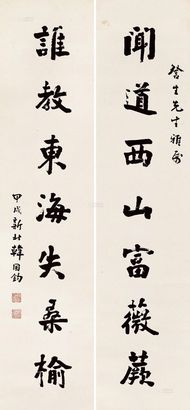 聞道西山富薇蕨
誰教東海失桑榆
先生雅屬
甲戌新秋韓國鈞